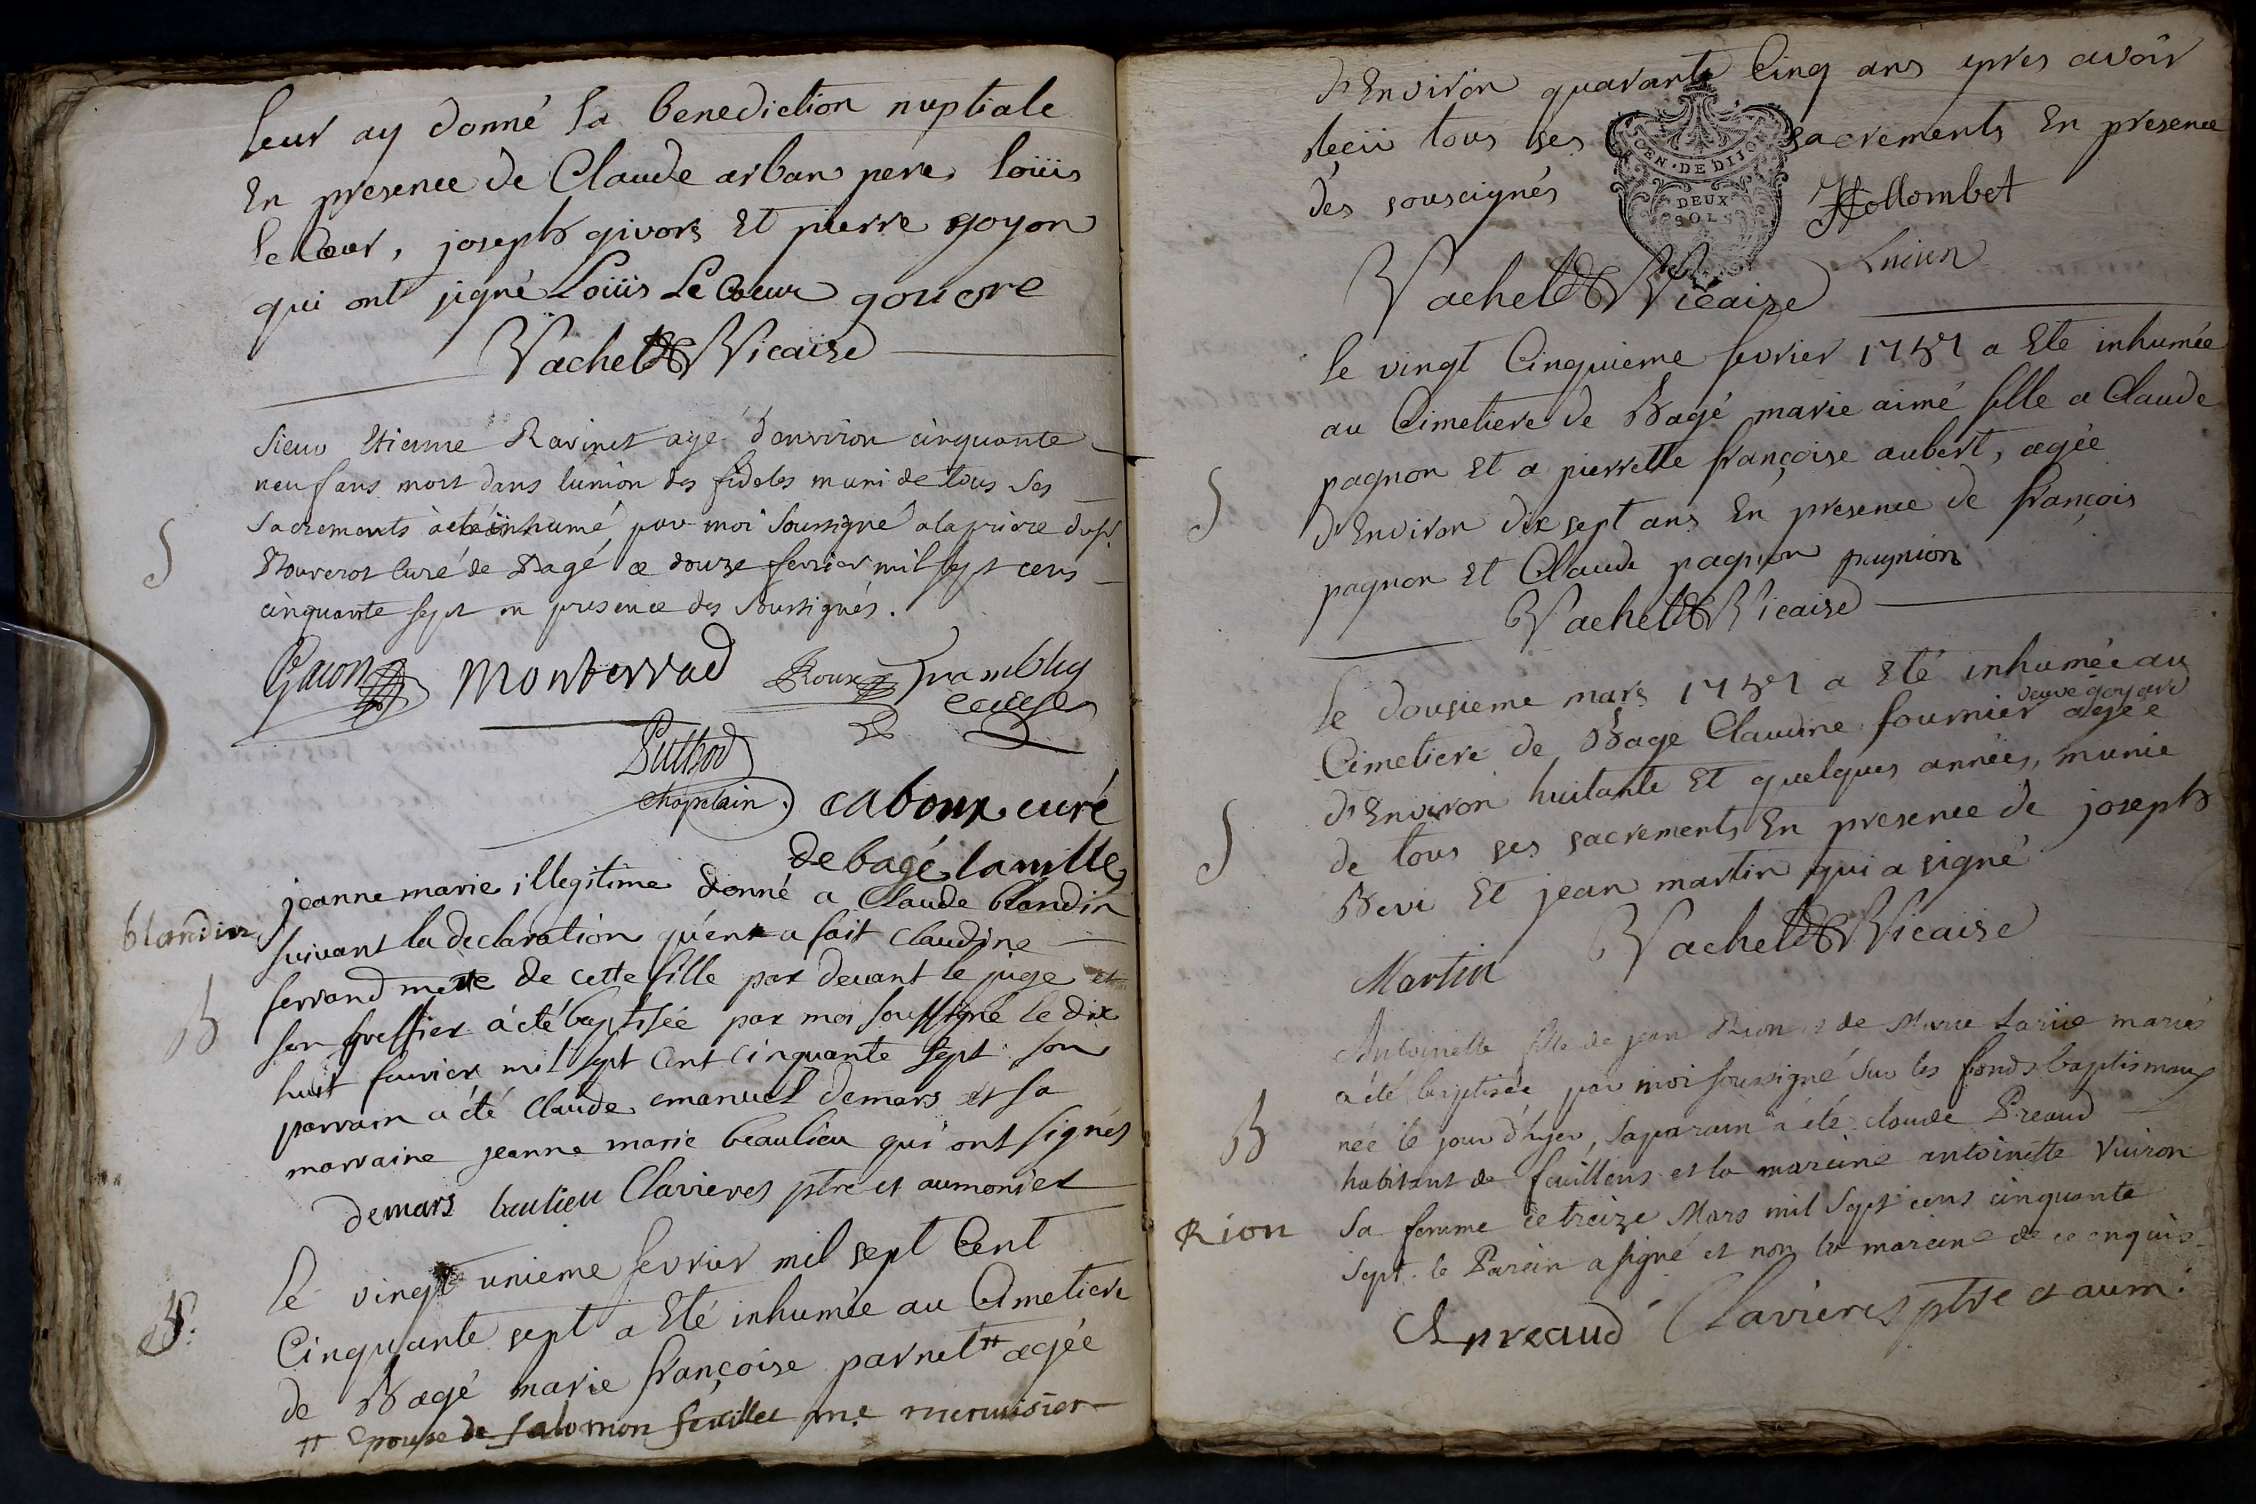 leur ay donné la benediction nuptiale
En presence de Claude arban pere, loüis
le Cœur, joseph givors Et pierre goyon
qui ont signé Loüis Le Cœur goucore
Vachet Vicaire
Sieur Etienne Ravinet agé d'environ cinquante
neuf ans mort dans lunion des fideles muni de tous ses
Sacrements à été inhumé par moi Soussigné a la priere du sr.
Curé de Bagé ce douze fevrier mil sept cens
cinquante sept en presence des Soussignés.
S
Gacon Monterrad Roux Trambly
eccles
Puthod
chapelain. cabour curé
de bagé la ville
jeanne marie illegitime donné a Claude blandin
blandin
suivant la declaration qu'en a fait Claudine
ferrand mere de cette fille par devant le juge et
B
son greffier à été baptisée par moi soussigné le dix
huit fevrier mil sept cent cinquante sept son
parrain a été Claude emanuel demars et sa
marraine jeanne marie beaulieu qui ont signés
demars beulieu Clavieres ptre et aumonier
le vingt unieme fevrier mil sept Cent
Cinquante sept a Eté inhumée au Cimetiere
de Bagé marie françoise parnet # agée
# epouse de salomon feuillet me menuisier
d'Environ quarante Cinq ans apres avoir
reçü tous ses sacrements En presence
des sousignés
CEN. DE DIJON
DEUX
SOLS
Hollombet
Vachet Vicaire
Lucien
le vingt Cinquieme fevrier 1757 a Ete inhumée
au Cimetiere de Bagé marie aimé fille a Claude
pagnon Et a pierrette françoise aubert, agée
S
d'Environ dix sept ans En presence de françois
pagnon Et Claude pagnon pagnion
Vachet Vicaire
le dousieme mars 1757 a Eté inhumée au
veuve goyard
Cimetiere de Bage Claudine fournier agée
d'Environ huitante Et quelques années, munie
S
de tous ses sacrements En presence de joseph
Bevi Et jean martin qui a signé
Martin Vachet Vicaire
Antoinette fille de jean Rion et de Marie Larive mariés
a été baptisée par moi soussigné sur les fonds baptismaux
B
née le jour d'hyer, sa parain a été claude Preaud
habitant de feuillens et la maraine antoinette Vuiron
Rion
sa femme ce treize Mars mil sept cens cinquante
sept. le Parain a signé et non la maraine de ce enquise
Cl preaud Clavieres ptre et aum.